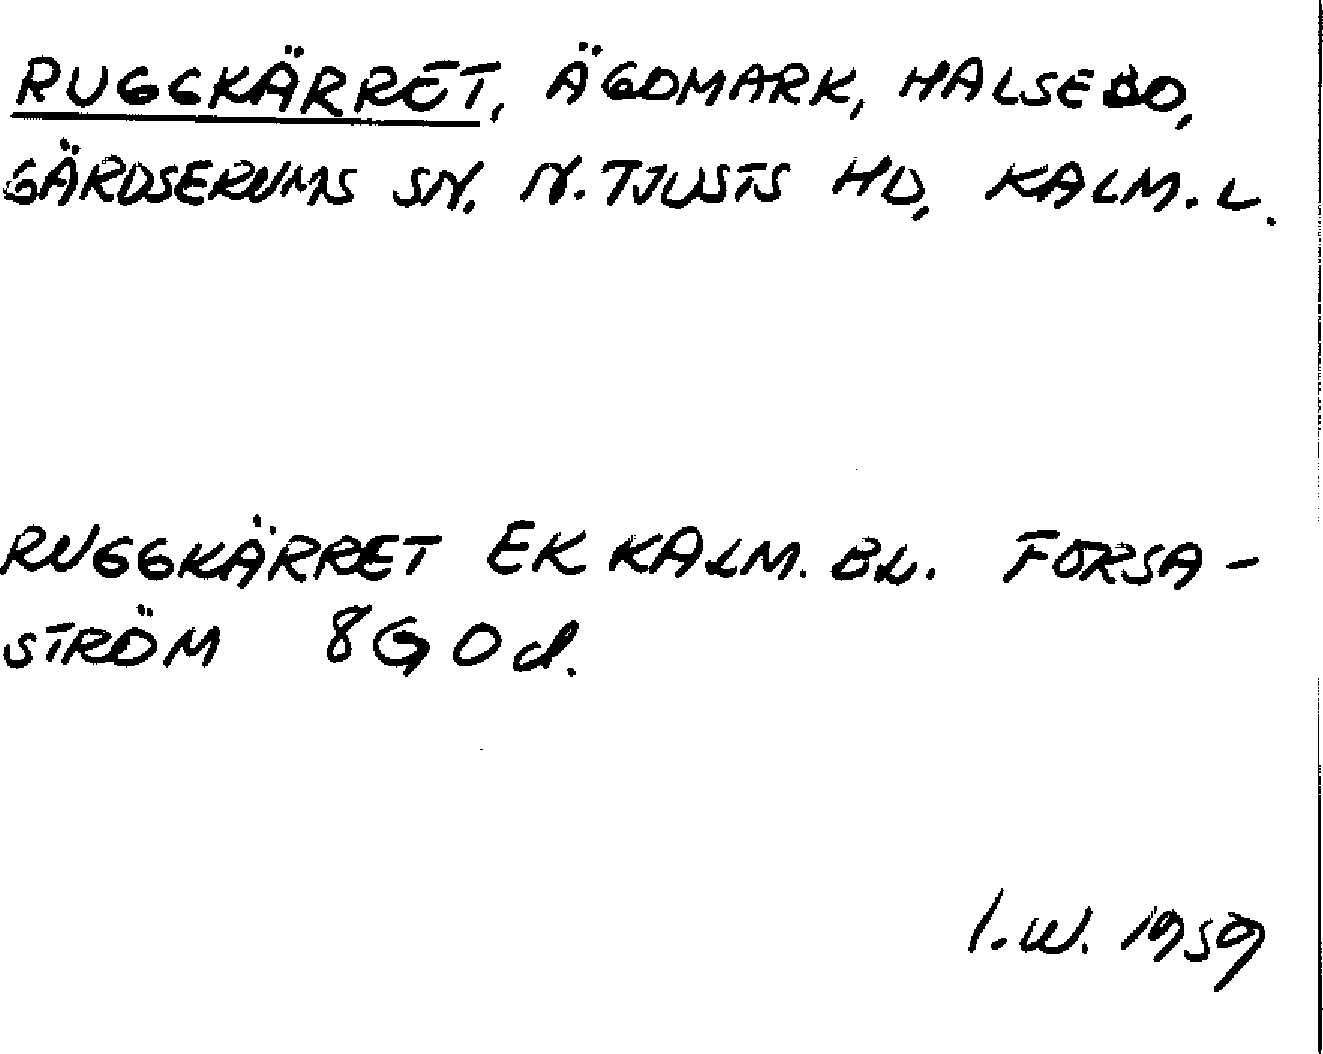 RUGGKÄRRET, ÄGOMARK, HALSEBO,
GÄRDSERUMS SN. N. TJUSTS HD, KALM. L.
RUGGKÄRRET EK KALM. BL. FORSA-
STRÖM 8G 0d.
I.W. 1959